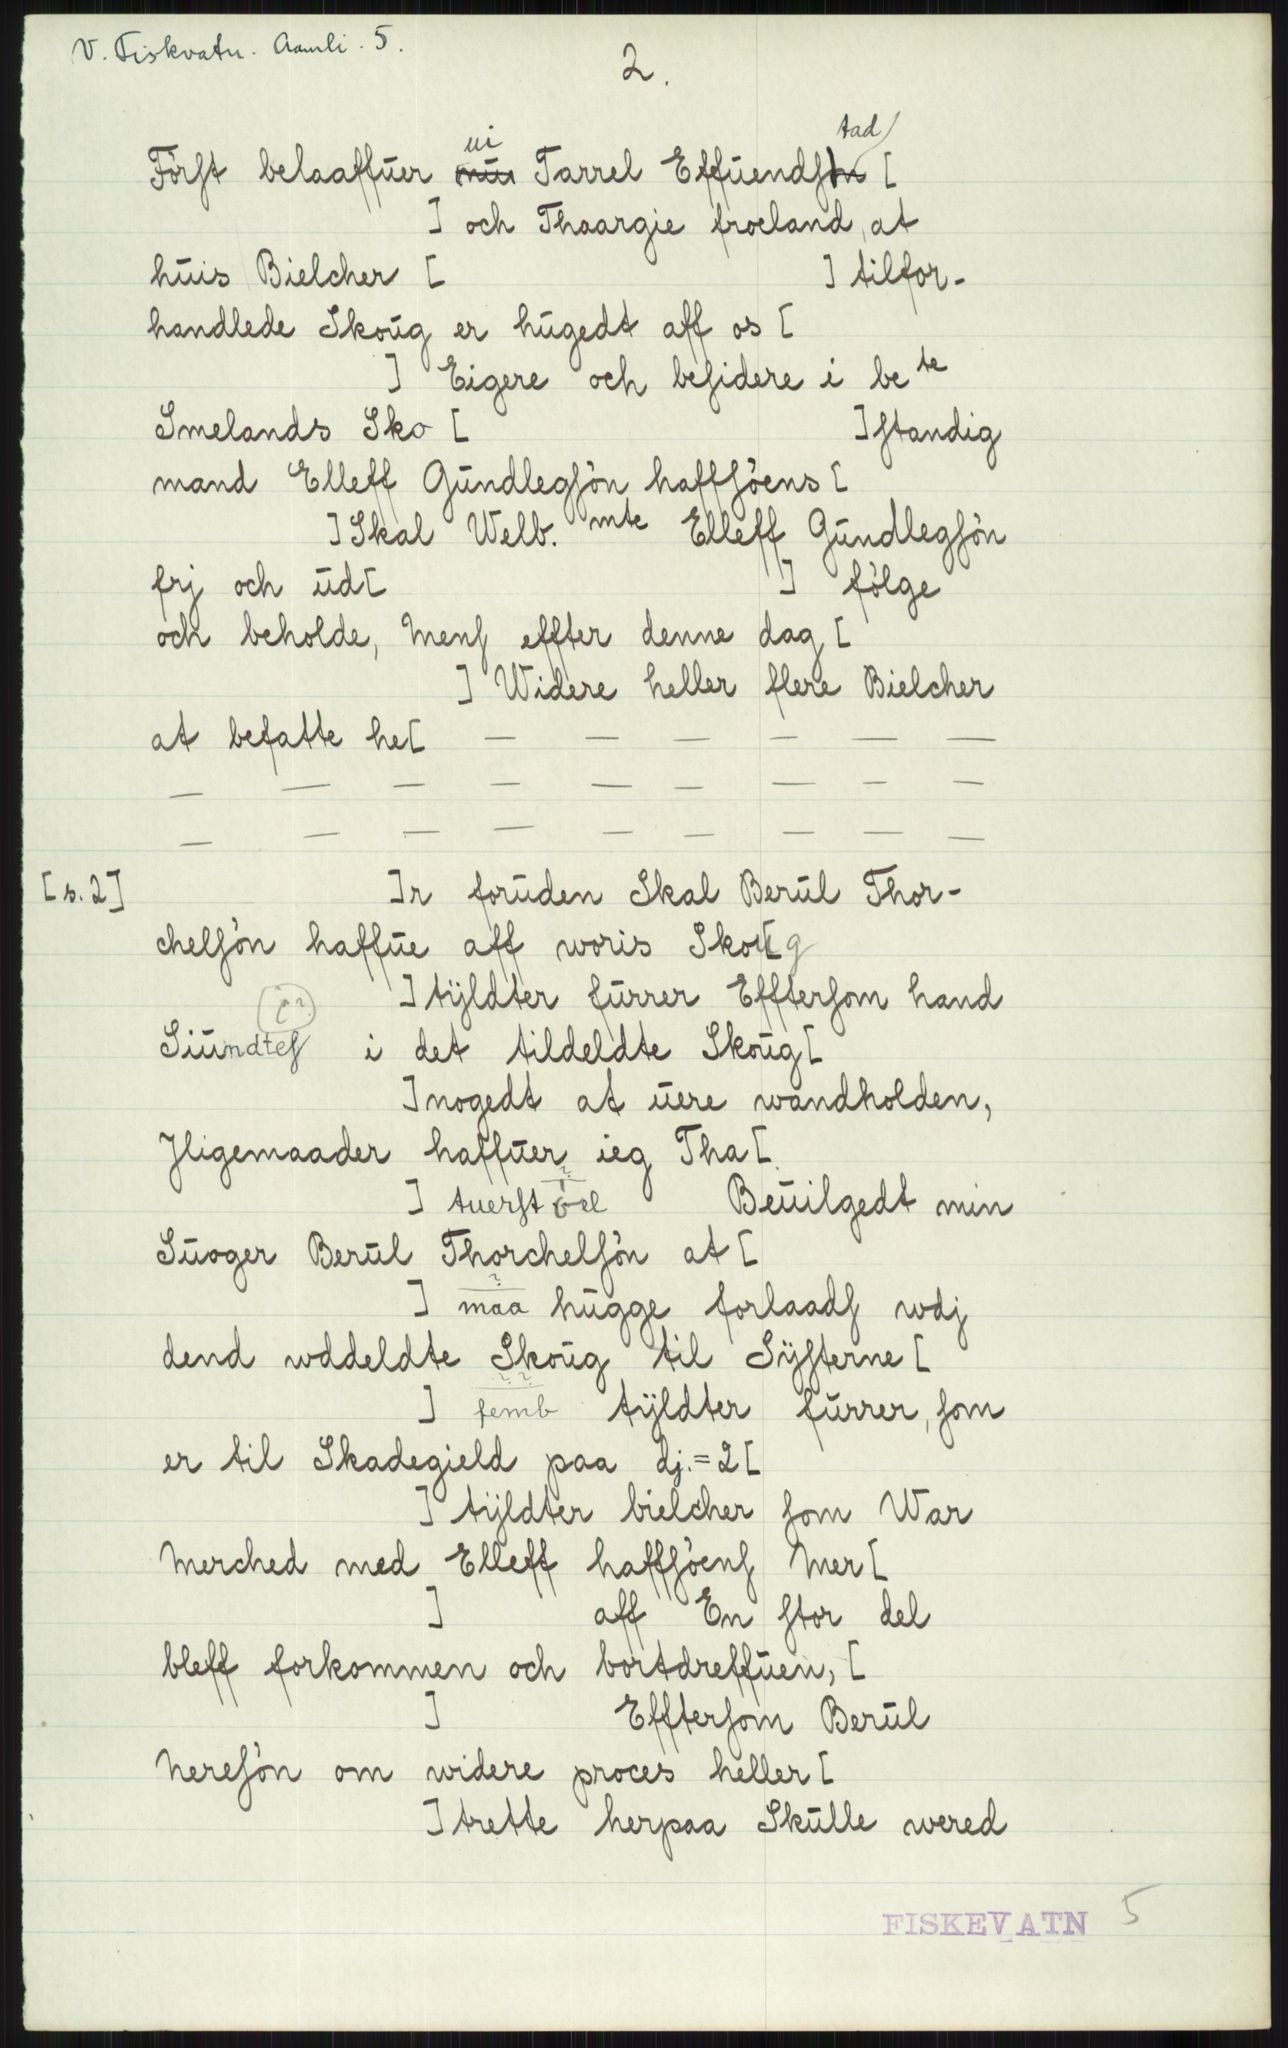 V. Fiskvatn. Aamli. 5.
2.
Först belaaffuer ~~nu~~ ui Tarrel Effuendstad [
] och Thaargie froeland, at
huis Bielcher [ ] tilfor-
handlede Skoŭg er hŭgedt aff os [
] Eigere och besidere i be te
Smelands Sko [ ] standig
mand Elleff Gŭndlegsön haffsöens [
] Skal Welb. mte Elleff Gŭndlegsön
frj och ŭd [ ] fölge
och beholde, Mens effter denne dag [
] Widere heller flere Bielcher
at befatte he [ — — — — — —
— — — — — — — — —
— — — — — — — — —
[s. 2] ] r forŭden Skal Berŭl Thor-
chelsön haffŭe aff woris Skoŭ[g
] tÿldter fŭrrer Efftersom hand
Siŭndtes i det tildeldte Skoŭg [
] nogedt at ŭere wandholden,
Jligemaader haffŭer ieg Tha [
] tuerst Beŭilgedt min
Sŭoger Berŭl Thorchelsön at [
] maa hŭgge forlaads wdj
dend wddeldte Skoŭg til Sÿsterne [
] femb tÿldter fŭrrer, som
er til Skadegield paa dj. = 2 [
] tÿldter bielcher som War
Merched med Elleff haffsöens Mer [
] aff En stor del
bleff forkommen och bortdreffŭen, [
] Efftersom Berŭl
Neresön om widere proces heller [
] trette herpaa Skŭlle wered
FISKEVATN 5